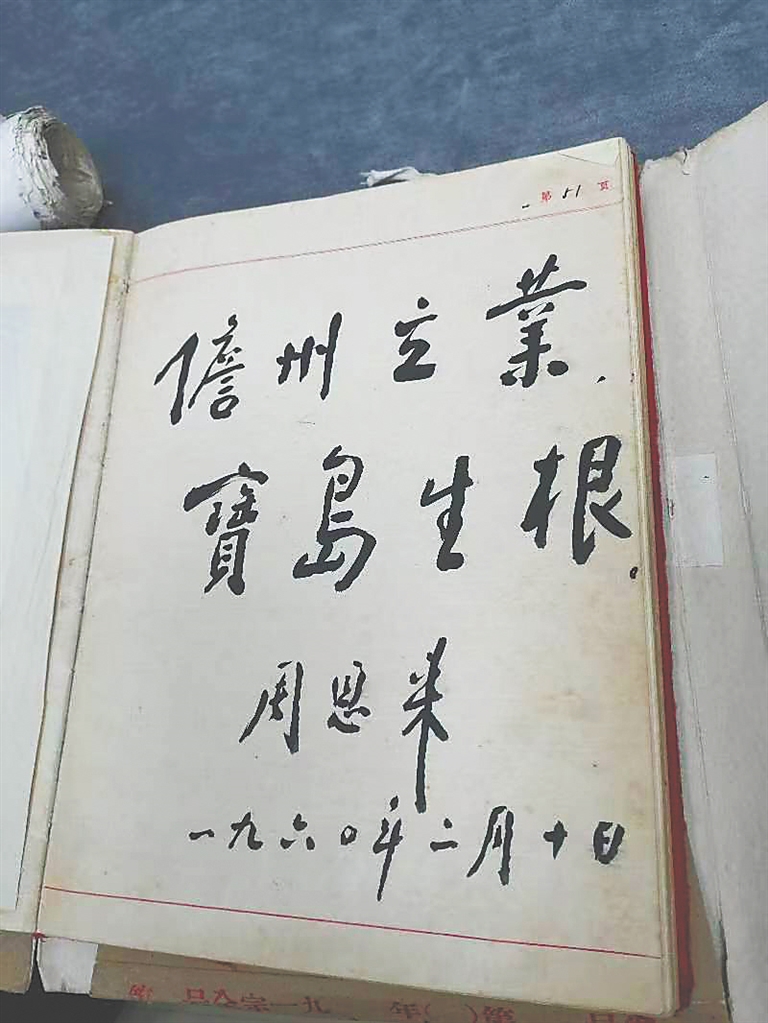 第 51 页
儋州立業.
寶島生根.
周恩来
一九六〇年二月十日